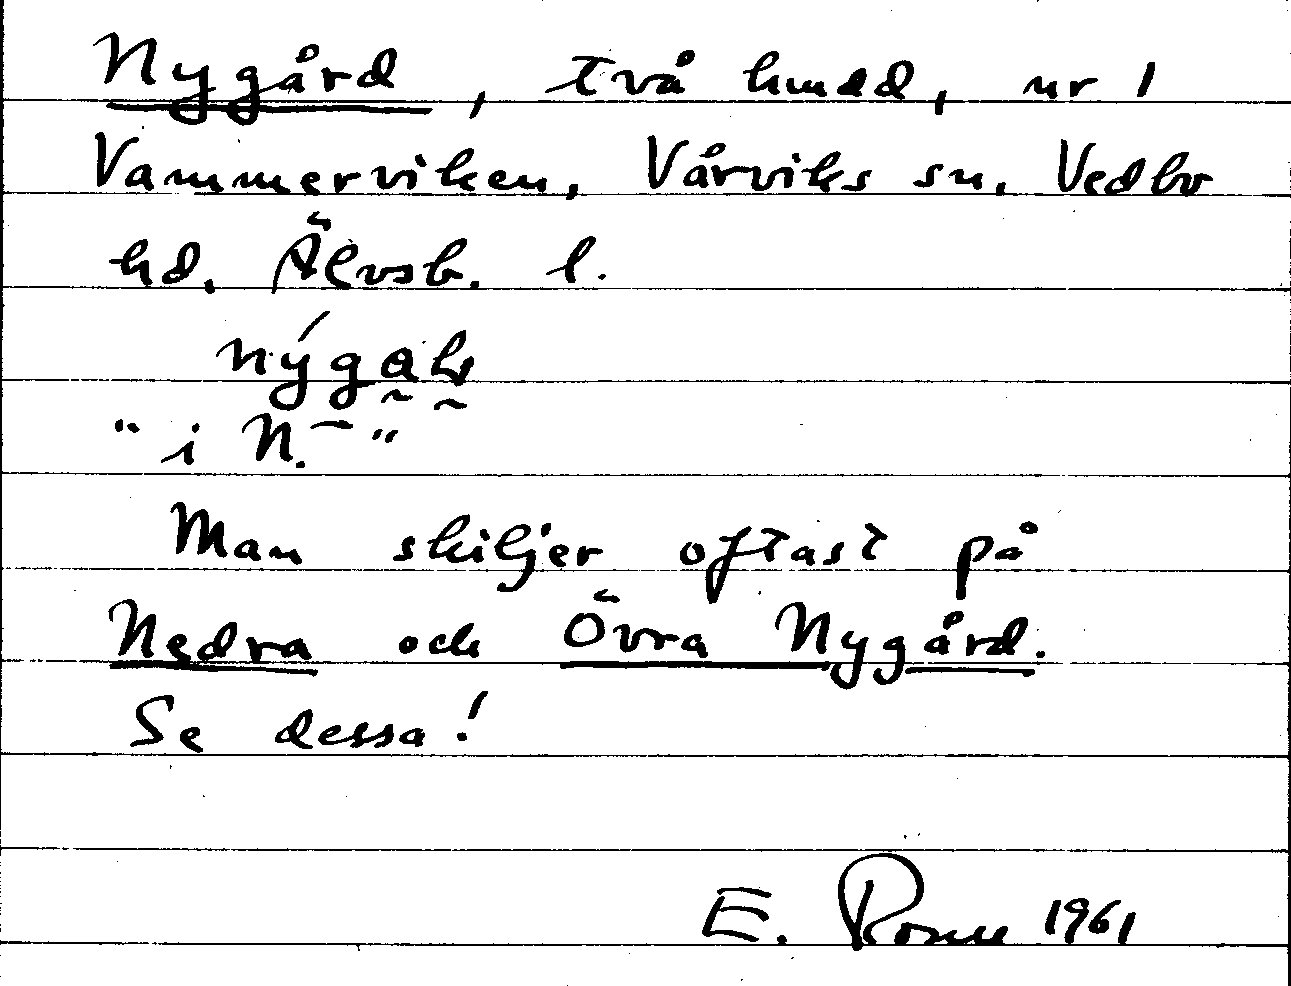 Nygård, två hmdd, nr 1
Vammerviken, Vårviks sn. Vedbo
hd. Älvsb. l.
"i N.–"
Man skiljer oftast på
Nedra och Övra Nygård.
Se dessa!
E. 1961